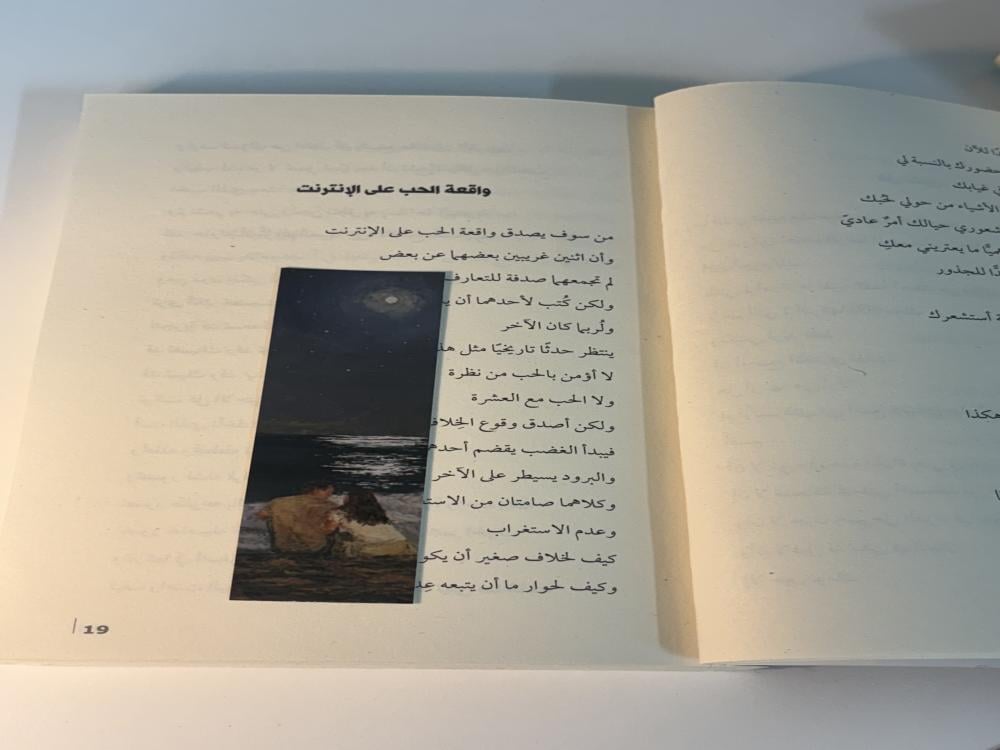 واقعة الحب على الإنترنت
من سوف يصدق واقعة الحب على الإنترنت
وأن اثنين غريبين بعضهما عن بعض
لم تجمعهما صدفة للتعارف
ولكن كُتب لأحدهما أن
ولُربما كان الآخر
ينتظر حدثًا تاريخيًا مثل
لا أؤمن بالحب من نظرة
ولا الحب مع العشرة
ولكن أصدق وقوع
فيبدأ الغضب يقضم
والبرود يسيطر على الآخر
وكلاهما صامتان من
وعدم الاستغراب
كيف لخلاف صغير أن
وكيف لحوار ما أن يتبعه
19
للآن
حضورك بالنسبة لي
غيابك
الأشياء من حولي تحبك
شعوري حيالك أمرٌ عاديّ
ما يعتريني معكِ
للجذور
أستشعرك
هكذا